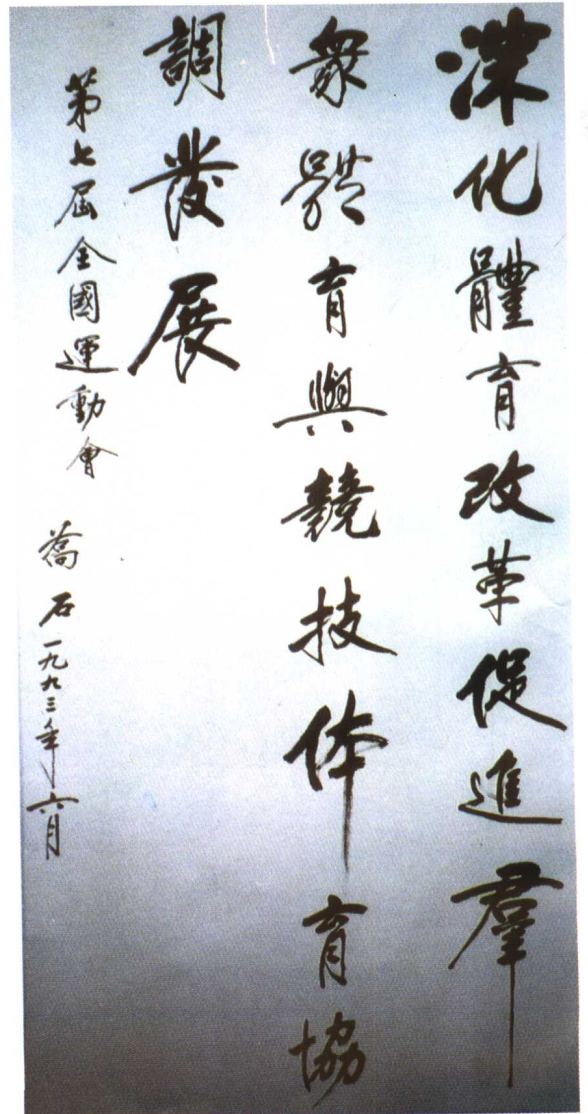 深化體育改革促進羣
衆體育與競技体育協
調發展
第七屆全國運動會
喬石一九九三年六月